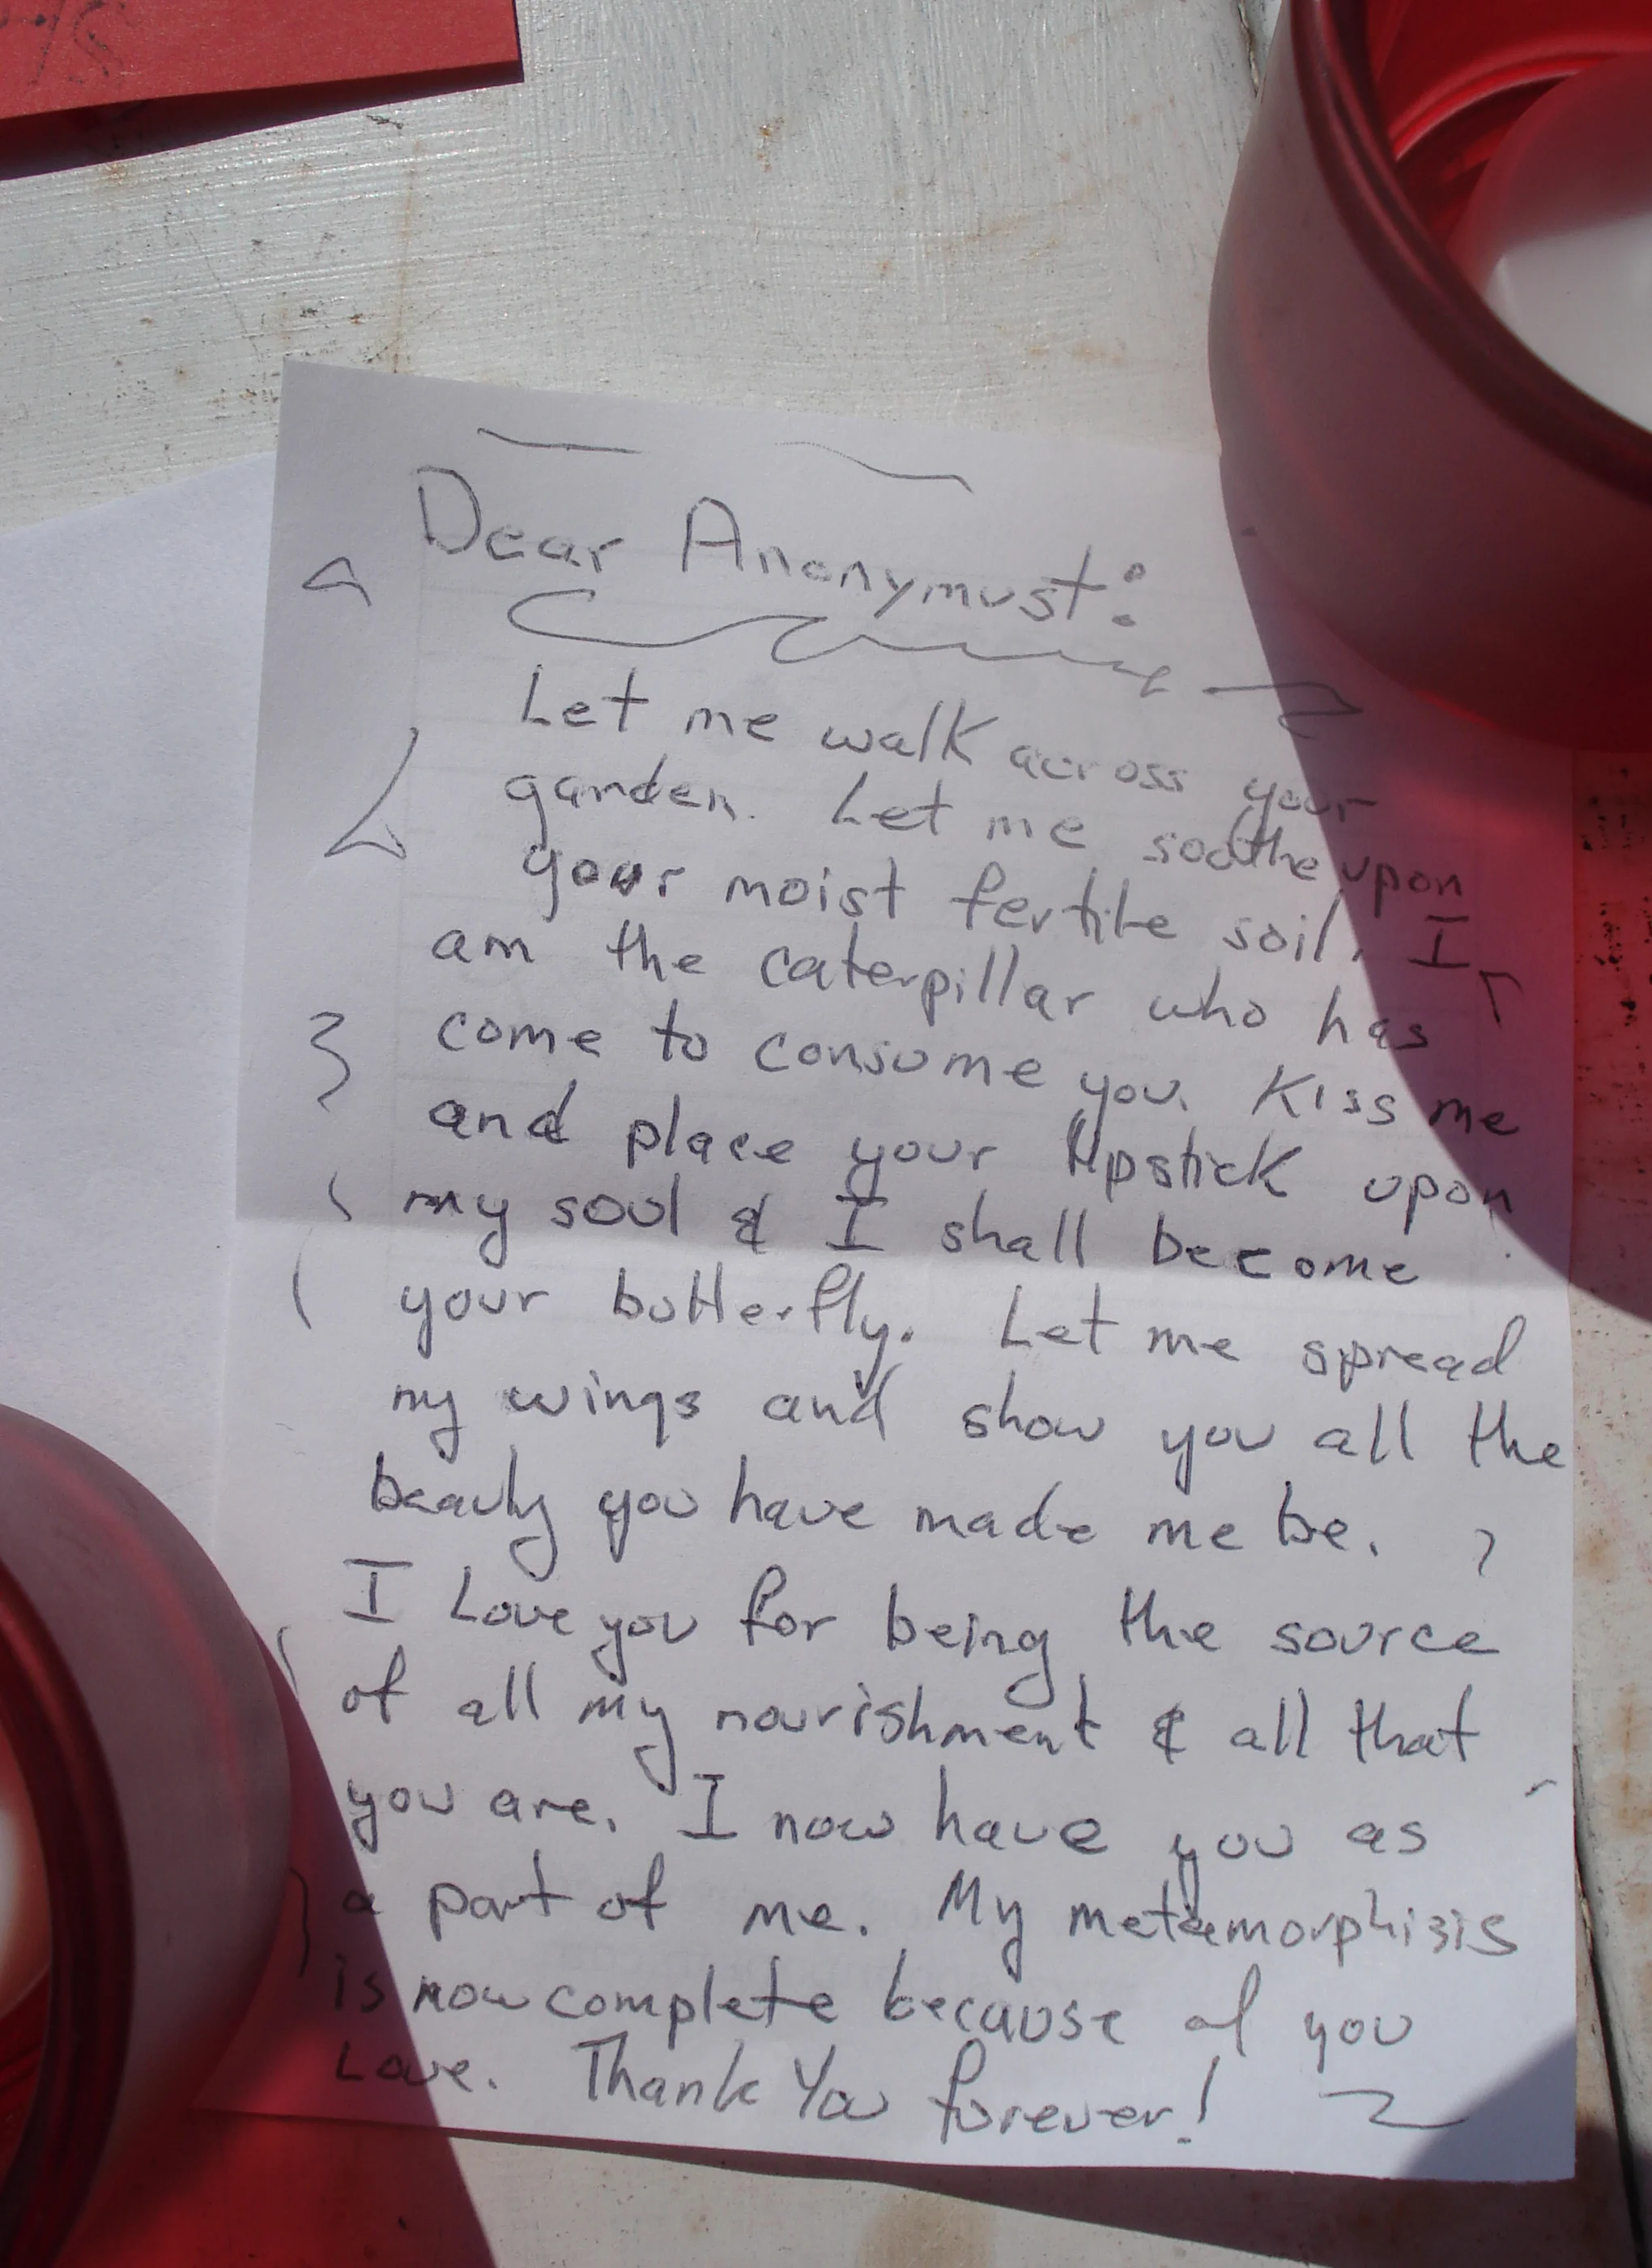 Dear Anonymust:
Let me walk across your
garden. Let me soothe upon
your moist fertile soil. I
am the caterpillar who has
come to consume you. Kiss me
and place your lipstick upon
my soul & I shall become
your butterfly. Let me spread
my wings and show you all the
beauty you have made me be.
I Love you for being the source
of all my nourishment & all that
you are. I now have you as
a part of me. My metamorphisis
is now complete because of you
Love. Thank You forever!